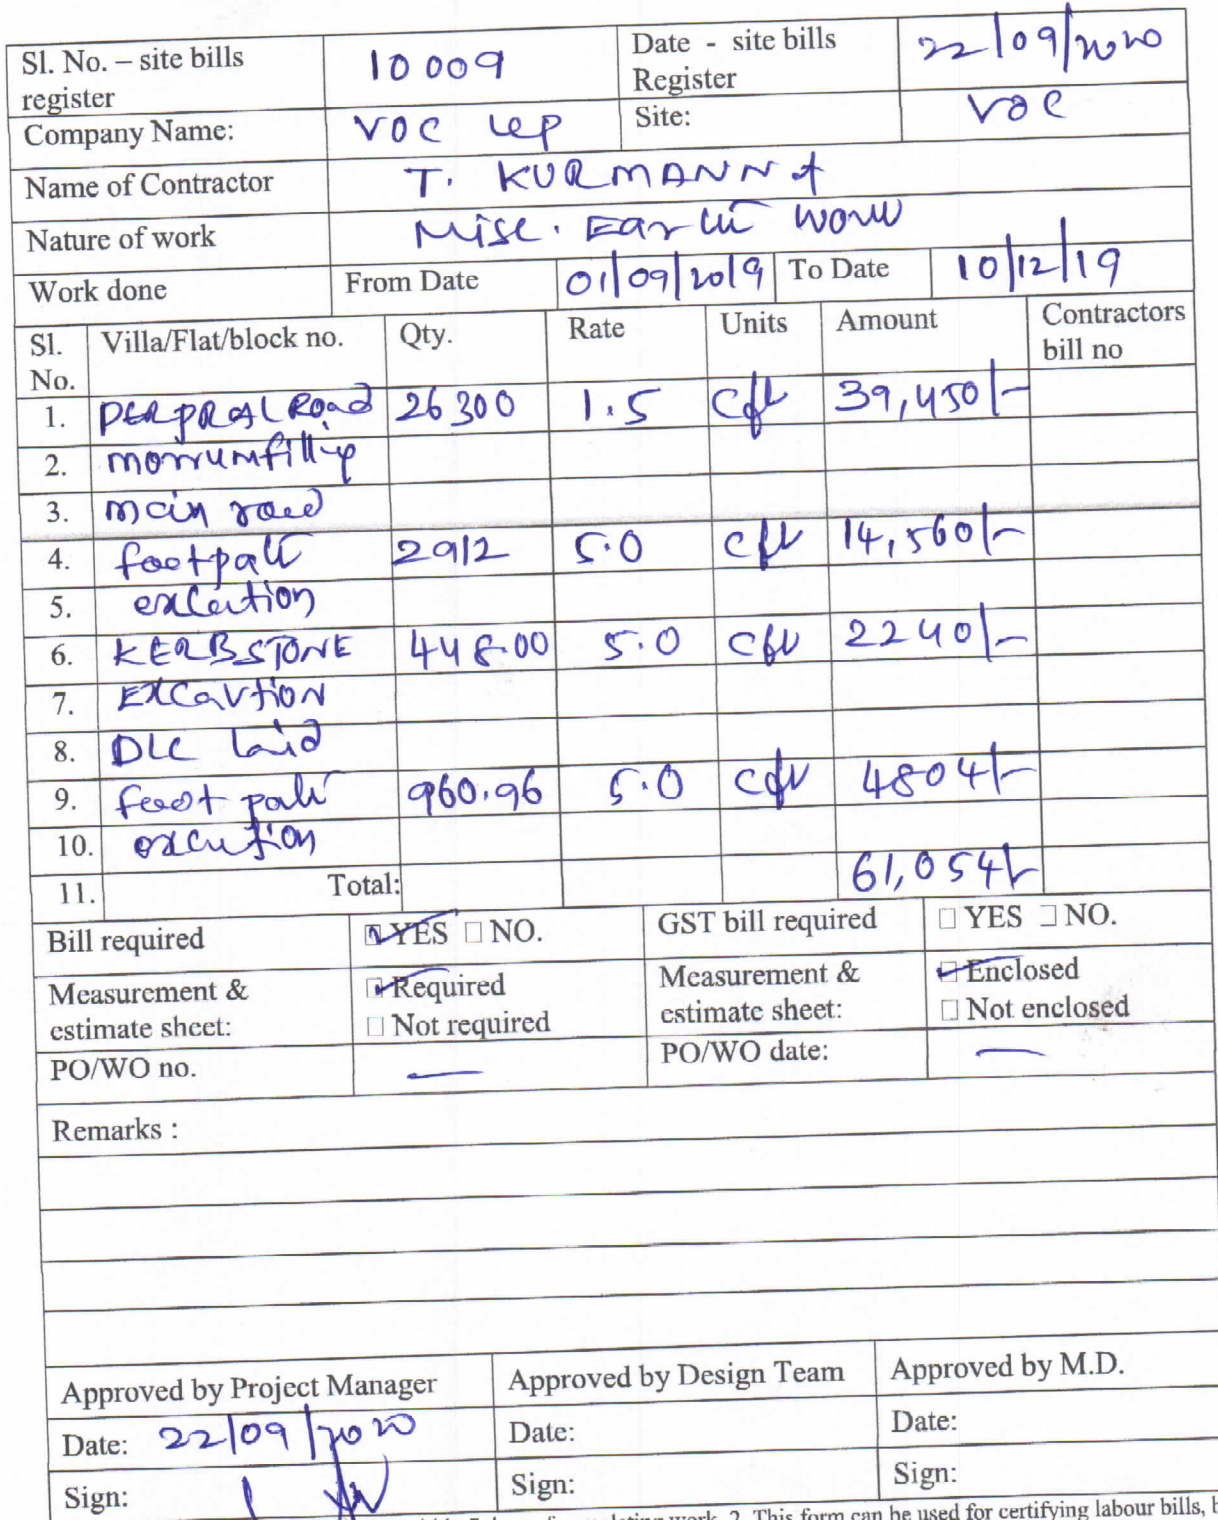 Sl. No. – site bills register 10009 Date - site bills Register 22/09/2020
Company Name: VOC LLP Site: VOC
Name of Contractor T. KURMANNA
Nature of work Misc. Earth work
Work done From Date 01/09/2019 To Date 10/12/19
Sl. No. Villa/Flat/block no. Qty. Rate Units Amount Contractors bill no
1. Road 26300 1.5 cft 39,450/-
2. morrumfilling
3. main road
4. footpath 2912 5.0 cft 14,560/-
5.
6. KERBSTONE 448.00 5.0 cft 2240/-
7. EXCavtION
8. DLC laid
9. foot path 960.96 5.0 cft 4804/-
10.
11. Total: 61,054/-
Bill required YES NO. GST bill required YES NO.
Measurement & estimate sheet: Required Not required Measurement & estimate sheet: Enclosed Not enclosed
PO/WO no. — PO/WO date: —
Remarks :
Approved by Project Manager Approved by Design Team Approved by M.D.
Date: 22/09/2020 Date: Date:
Sign: Sign: Sign:
work. 2. This form can be used for certifying labour bills,